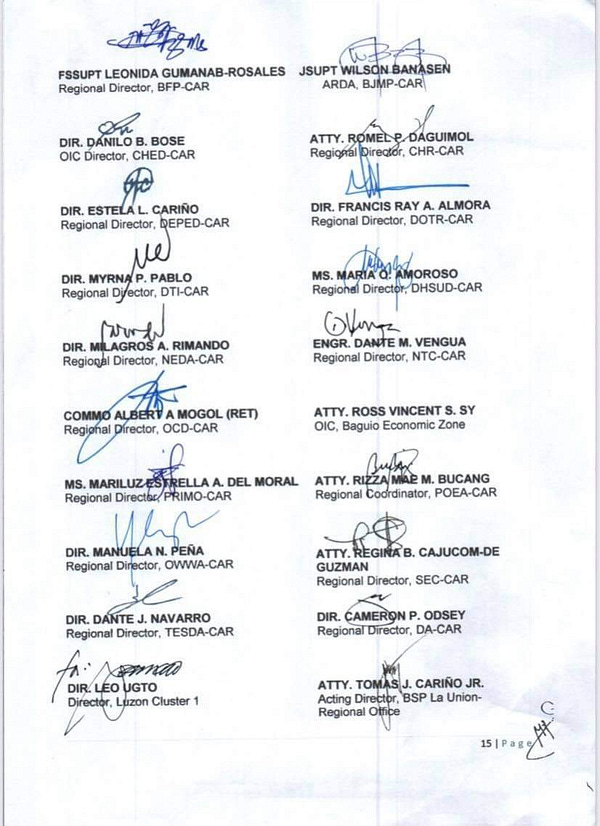 FSSUPT LEONIDA GUMANAB-ROSALES
Regional Director, BFP-CAR
JSUPT WILSON BANASEN
ARDA, BJMP-CAR
DIR. DANILO B. BOSE
OIC Director, CHED-CAR
ATTY. ROMEL P. DAGUIMOL
Regional Director, CHR-CAR
DIR. ESTELA L. CARIÑO
Regional Director, DEPED-CAR
DIR. FRANCIS RAY A. ALMORA
Regional Director, DOTR-CAR
DIR. MYRNA P. PABLO
Regional Director, DTI-CAR
MS. MARIA Q. AMOROSO
Regional Director, DHSUD-CAR
DIR. MILAGROS A. RIMANDO
Regional Director, NEDA-CAR
ENGR. DANTE M. VENGUA
Regional Director, NTC-CAR
COMMO ALBERT A MOGOL (RET)
Regional Director, OCD-CAR
ATTY. ROSS VINCENT S. SY
OIC, Baguio Economic Zone
MS. MARILUZ ESTRELLA A. DEL MORAL
Regional Director, PRIMO-CAR
ATTY. RIZZA MAE M. BUCANG
Regional Coordinator, POEA-CAR
DIR. MANUELA N. PEÑA
Regional Director, OWWA-CAR
ATTY. REGINA B. CAJUCOM-DE
GUZMAN
Regional Director, SEC-CAR
DIR. DANTE J. NAVARRO
Regional Director, TESDA-CAR
DIR. CAMERON P. ODSEY
Regional Director, DA-CAR
for:
DIR. LEO UGTO
Director, Luzon Cluster 1
ATTY. TOMAS J. CARIÑO JR.
Acting Director, BSP La Union-
Regional Office
15 | Page